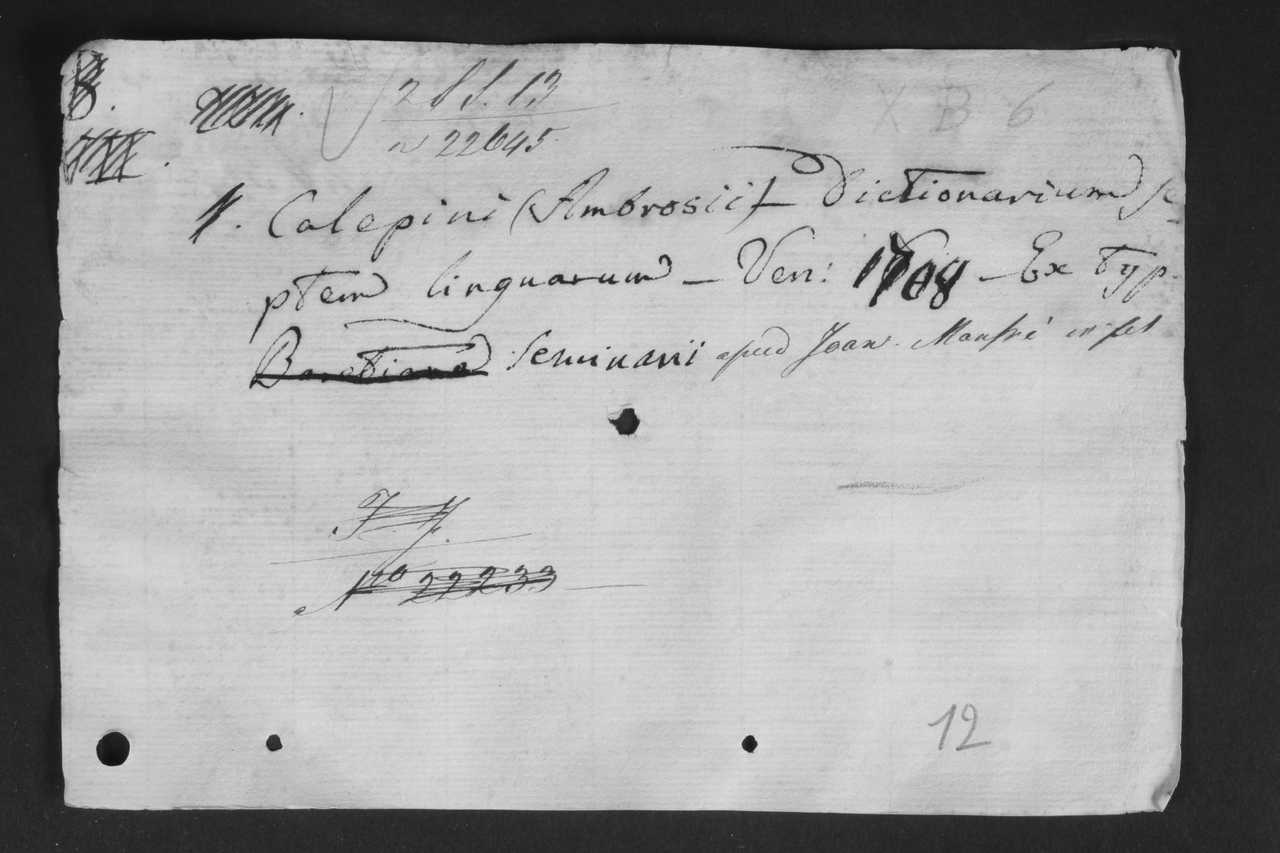 8.
2 6 S. 13
X B 6
n 22645
1. Calepini (Ambrosii) Dictionarium se
ptem linguarum – Ven: 1708 – Ex typ.
Barotiana Seminarii apud Joan. Manfrè in fol
N.ro 22233
12